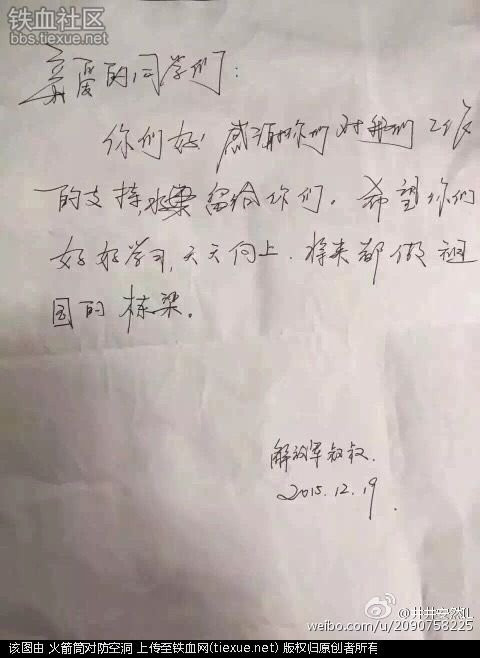 铁血社区
bbs.tiexue.net
亲爱的同学们：
你们好！感谢你们对我们工作
的支持,水果留给你们。希望你们
好好学习,天天向上.将来都做祖
国的栋梁。
解放军叔叔.
2015.12.19.
@井井安然L
weibo.com/u/2090758225
该图由 火箭筒对防空洞 上传至铁血网(tiexue.net) 版权归原创者所有